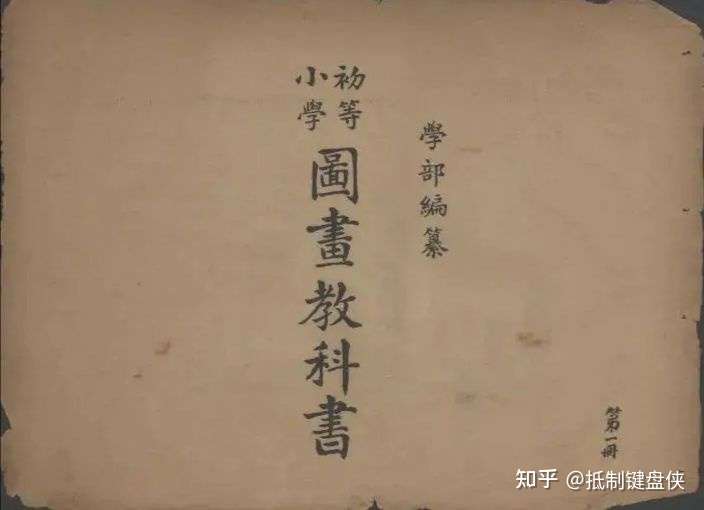 學部編纂
初等
小學
圖畫教科書
第一冊
知乎 @抵制键盘侠